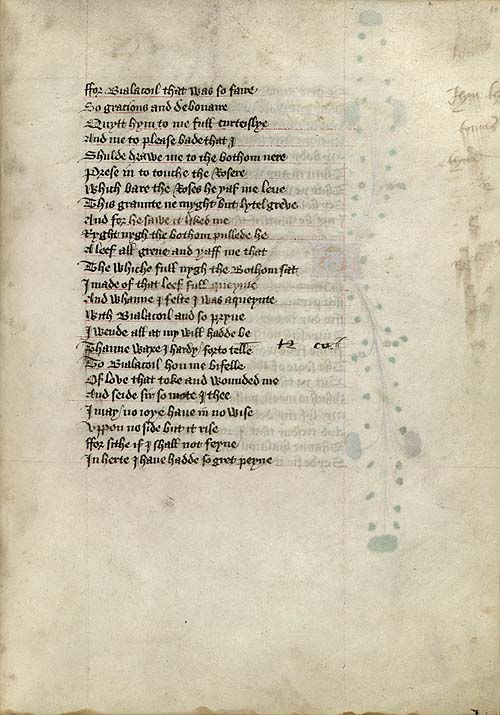 ffor Bialacoil that was so faire
So gracious and debonaire
Quytt hym to me full curteislye
And me to please bade that I
Shulde drawe me to the bothom nere
Prese in to touche the Rosere
Which bare the Roses he yaf me leve
This graunte ne myght but lytel greve
And for he sawe it liked me
Ryght nygh the bothom pullede he
A leef all grene and yaff me that
The whiche full nygh the Bothom sat
I made of that leef full queynte
And whanne I felte I was aqueynte
With Bialacoil and so pryve
I wende all at my will hadde be
Thanne waxe I hardy / forto telle
To Bialacoil hou me bifelle
Of love that toke and wounded me
And seide sir so mote I thee
I may / no ioye have in no wise
Uppon no side but it rise
ffor sithe if I shall not feyne
In herte I have hadde so gret peyne